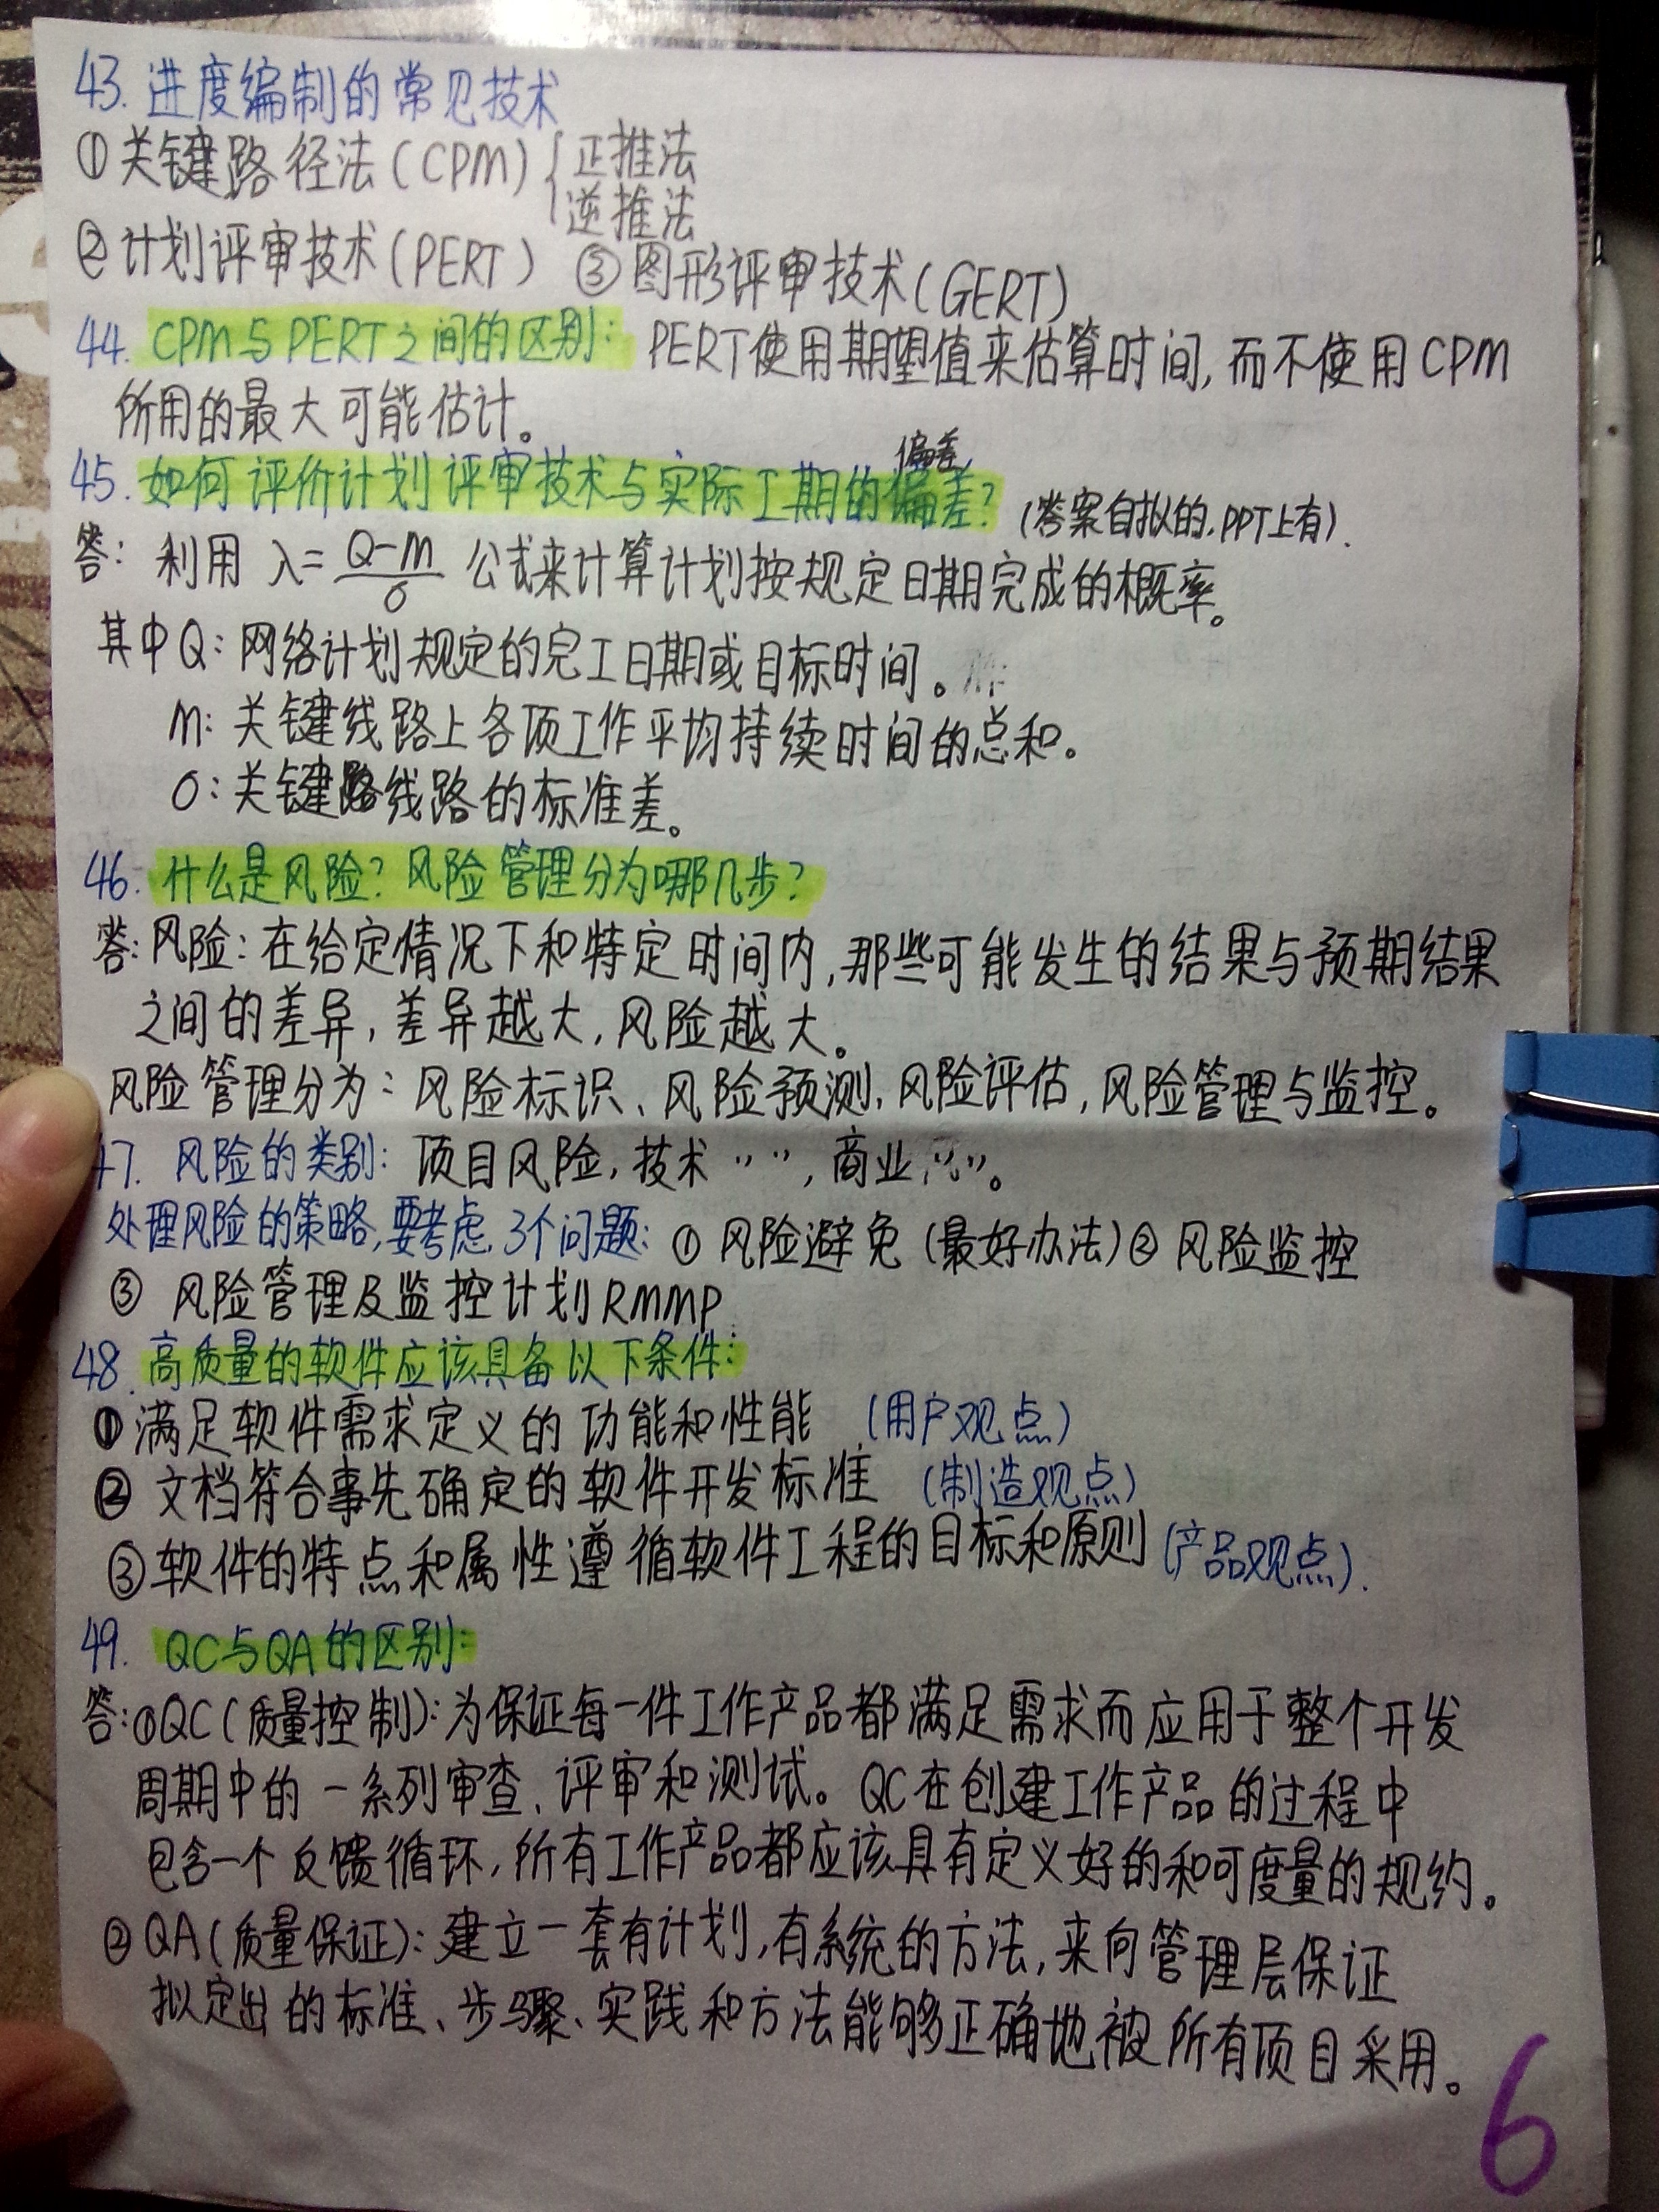 43. 进度编制的常见技术
①关键路径法(CPM){正推法
逆推法
②计划评审技术(PERT) ③图形评审技术(GERT)
44. CPM与PERT之间的区别: PERT使用期望值来估算时间,而不使用CPM
所用的最大可能估计。
偏差
45. 如何评价计划评审技术与实际工期的偏差? (答案自拟的,PPT上有).
答: 利用 λ=(Q-M)/σ 公式来计算计划按规定日期完成的概率。
其中Q: 网络计划规定的完工日期或目标时间。
M: 关键线路上各项工作平均持续时间的总和。
σ: 关键线路的标准差。
46. 什么是风险? 风险管理分为哪几步?
答:风险: 在给定情况下和特定时间内,那些可能发生的结果与预期结果
之间的差异,差异越大,风险越大。
风险管理分为: 风险标识、风险预测,风险评估,风险管理与监控。
47. 风险的类别: 项目风险,技术〃〃,商业〃〃。
处理风险的策略,要考虑3个问题: ①风险避免(最好办法)②风险监控
③ 风险管理及监控计划RMMP
48. 高质量的软件应该具备以下条件:
①满足软件需求定义的功能和性能 (用户观点)
②文档符合事先确定的软件开发标准 (制造观点)
③软件的特点和属性遵循软件工程的目标和原则(产品观点).
49. QC与QA的区别:
答:①QC(质量控制):为保证每一件工作产品都满足需求而应用于整个开发
周期中的一系列审查、评审和测试。QC在创建工作产品的过程中
包含一个反馈循环,所有工作产品都应该具有定义好的和可度量的规约。
②QA(质量保证):建立一套有计划,有系统的方法,来向管理层保证
拟定出的标准、步骤、实践和方法能够正确地被所有项目采用。
6